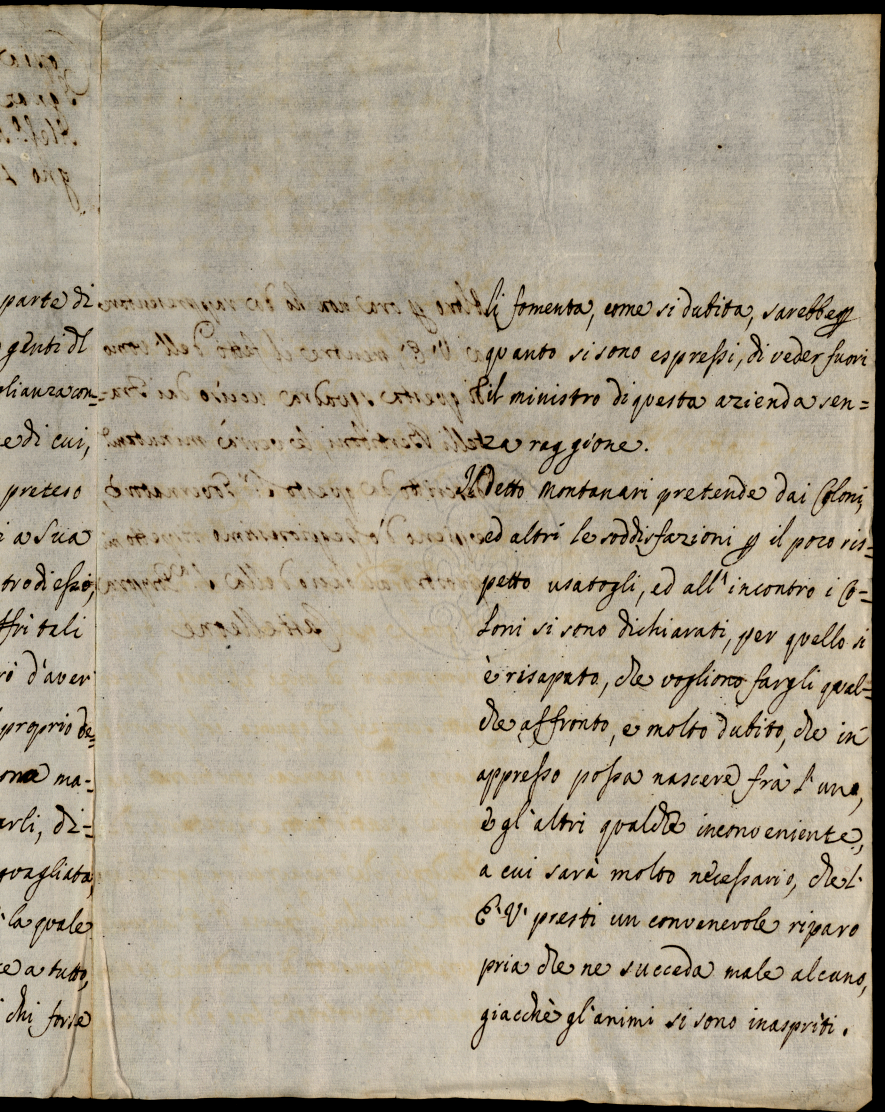 parte di
genti dl
glianza con=
e di cui,
preteso
i a Sua
tro di esso,
ffri tali
rò d'aver
proprio de=
ona ma=
arli, di=
quagliata,
la quale
ce a tutto,
chi forse
li fomenta, come si dubita, sarebbe p
quanto si sono espressi, di veder fuori
il ministro di questa azienda sen=
za raggione.
Il detto Montanari pretende dai Coloni,
ed altri le soddisfazioni p il poco ris=
petto usatogli, ed all'incontro i Co=
loni si sono dichiarati, per quello si
è risaputo, che vogliono fargli qual=
che affronto, e molto dubito, che in
appresso possa nascere frà l'uno,
è gl'altri qualche inconveniente,
a cui sarà molto necessario, che l'
E. V. presti un convenevole riparo
pria che ne succeda male alcuno,
giacchè gl'animi si sono inaspriti.